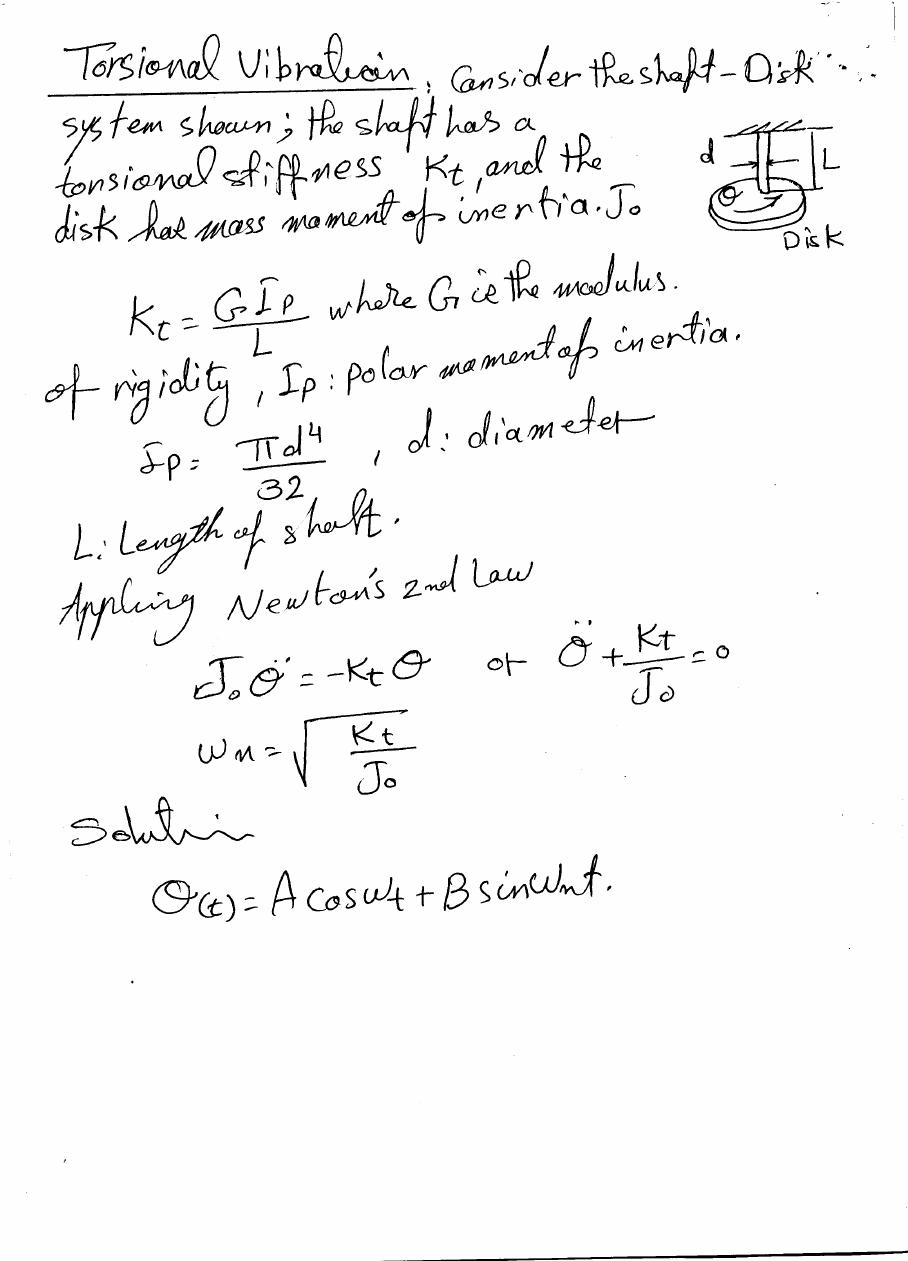 Torsional Vibration, Consider the shaft-Disk
system shown; the shaft has a
torsional stiffness Kt, and the
disk has mass moment of inertia. Jo
d
L
θ
Disk
Kt = G Ip / L where G is the modulus.
of rigidity, Ip: polar moment of inertia.
Ip = πd⁴ / 32, d: diameter
L: Length of shaft.
Applying Newton's 2nd Law
Jo θ̈ = -Kt θ or θ̈ + Kt / Jo = 0
ωn = √(Kt / Jo)
Solution
θ(t) = A cos ωt + B sin ωnt.